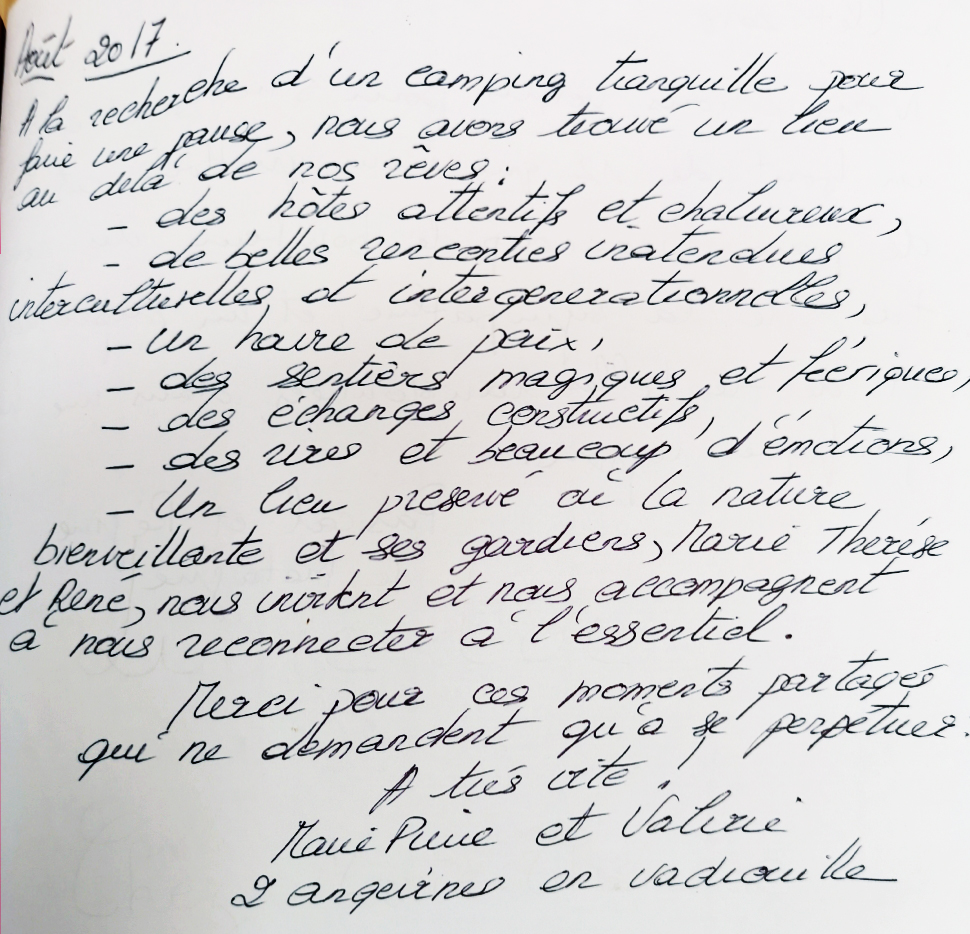 Août 2017.
A la recherche d'un camping tranquille pour
faire une pause, nous avons trouvé un lieu
au delà de nos rêves :
- des hôtes attentifs et chaleureux,
- de belles rencontres inatendues
interculturelles et intergenerationnelles,
- Un havre de paix,
- des sentiers magiques et féériques,
- des échanges constructifs,
- des rires et beaucoup d'émotions,
- Un lieu préservé où la nature
bienveillante et ses gardiens, Marie Thérèse
et René, nous invitent et nous accompagnent
à nous reconnecter à l'essentiel.
Merci pour ces moments partagés
qui ne demandent qu'à se perpétuer.
A très vite !
Marie Pierre et Valérie
2 angevines en vadrouille